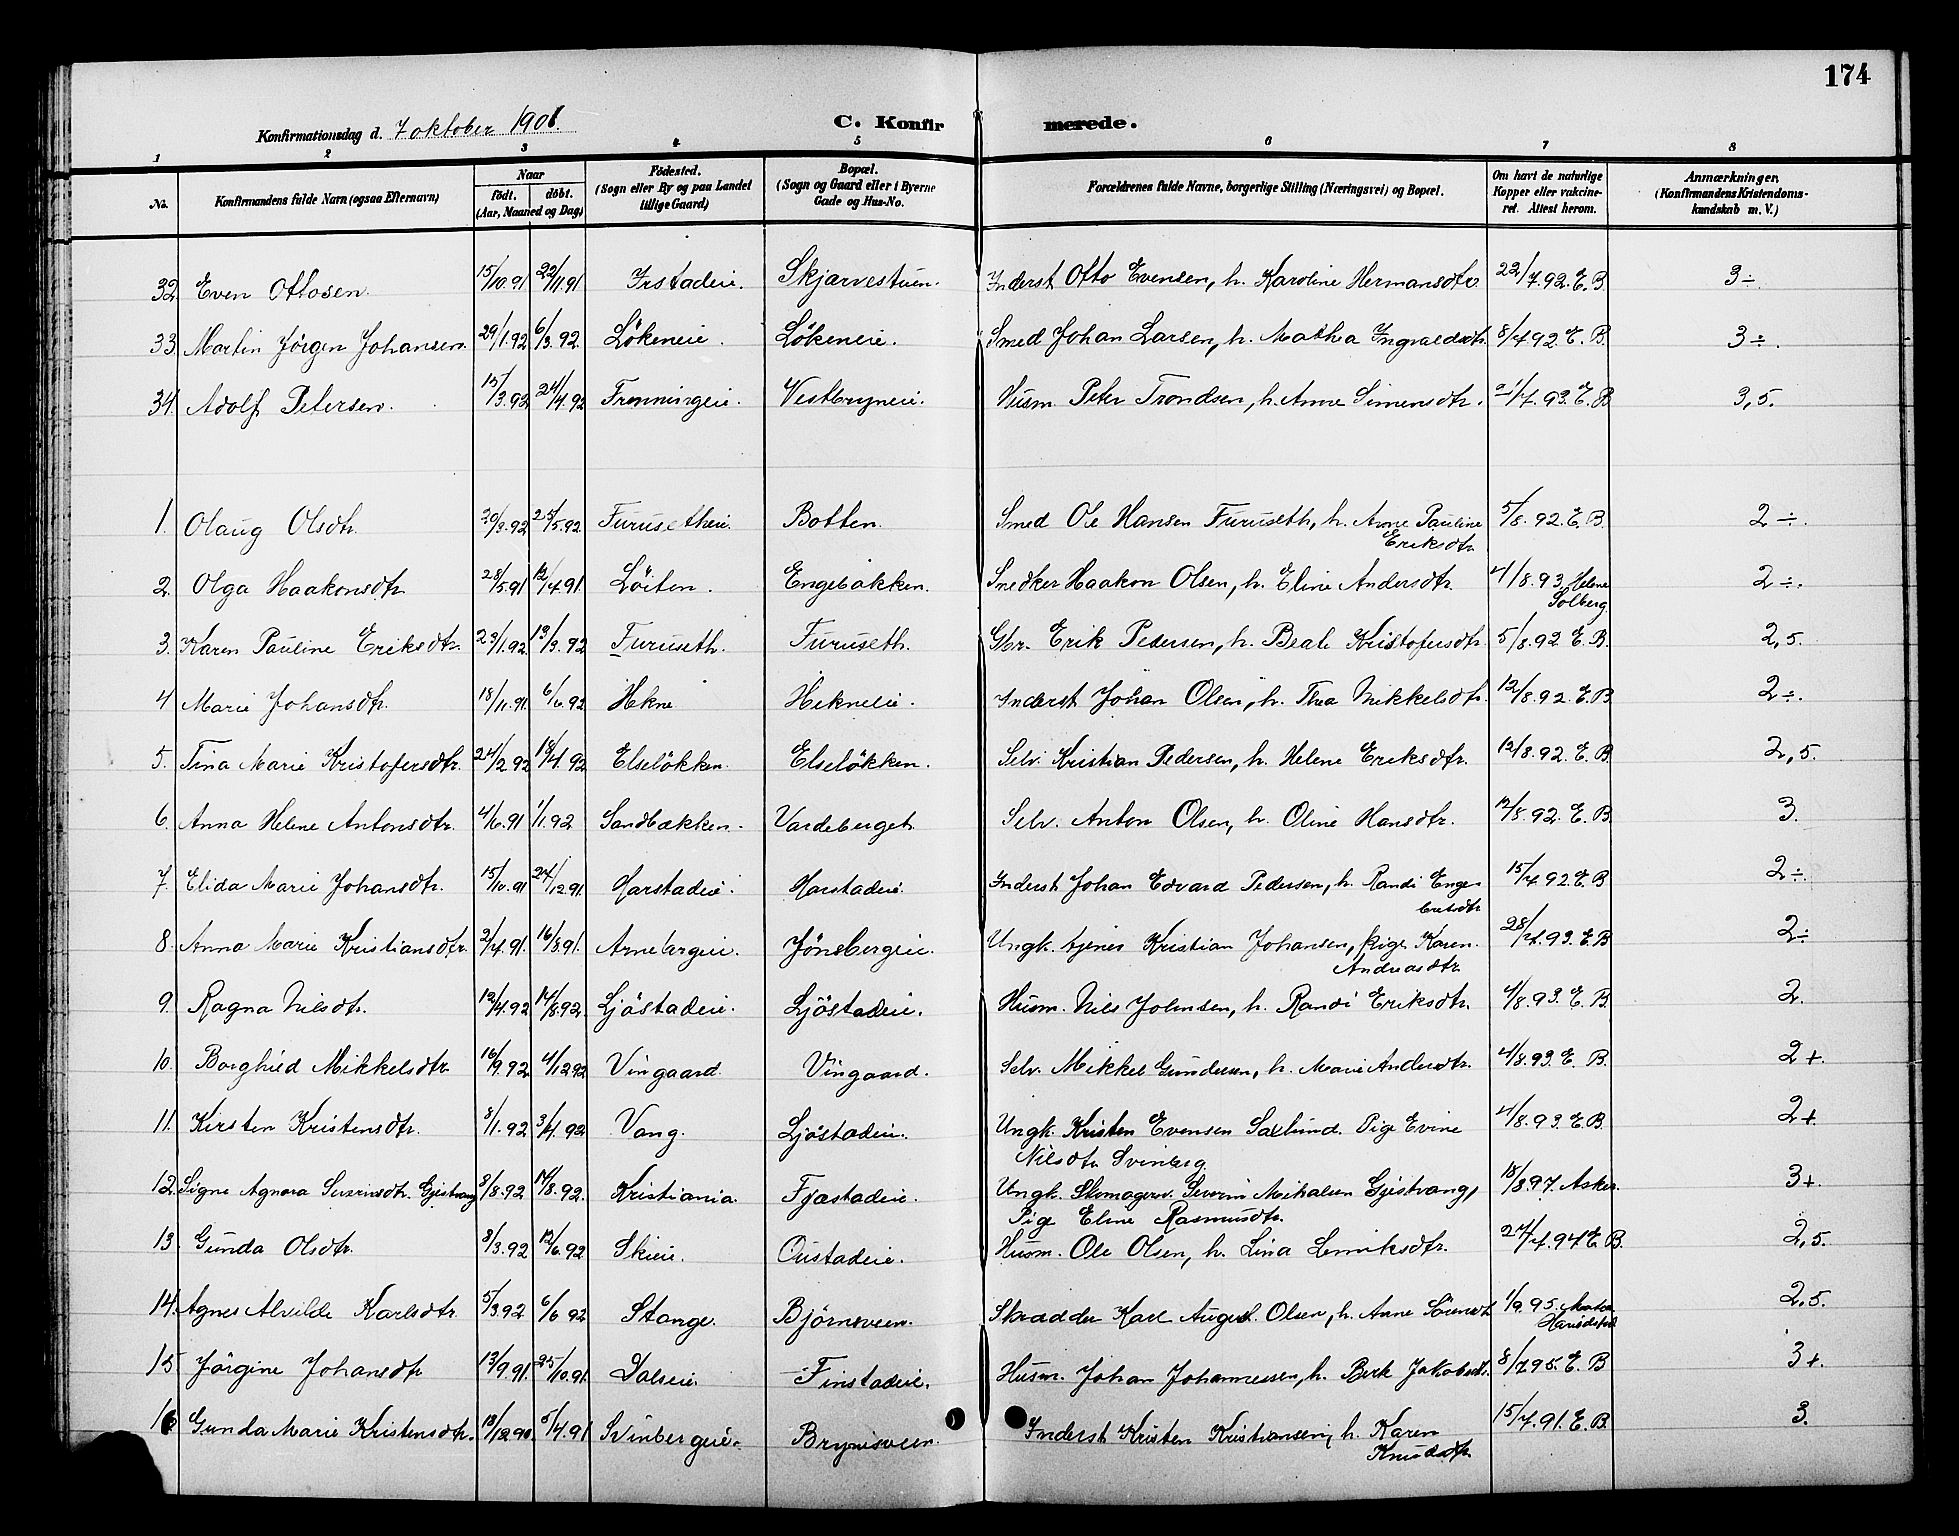 174
Konfirmationsdag d. 7 oktober 1906. C. Konfirmerede.
1 2 3 4 5 6 7 8
No. Konfirmandens fulde Navn (ogsaa Efternavn) Naar født. døbt. (Aar, Maaned og Dag) Fødested. (Sogn eller By og paa Landet tillige Gaard) Bopæl. (Sogn og Gaard eller i Byerne Gade og Hus-No. Forældrenes fulde Navne, borgerlige Stilling (Næringsvei) og Bopæl. Om havt de naturlige Kopper eller vakcineret. Attest herom. Anmærkninger, (Konfirmandens Kristendomskundskab m. V.)
32 Even Ottosen. 15/10.91 22/11.91 Irstadeie. Skjarvestuen. Inderst Otto Evensen, h. Karoline Hermansdtr. 22/7.92. E. B. 3÷.
33 Martin Jörgen Johansen. 29/1.92 6/3.92 Lökeneie. Lökeneie. Smed Johan Larsen, h. Mathea Ingvaldsdtr. 8/4.92. E. B. 3÷.
34. Adolf Petersen. 15/3.92 24/4.92 Frenningeie. Vestbryneie. Husm. Peter Trondsen, h. Anne Simensdtr. /7.93. E. B 3,5.
1. Olaug Olsdtr. 20/3.92 25/5.92 Furusetheie. Botten. Smed Ole Hansen Furuseth, h. Anne Pauline 5/8.92. E. B. 2÷.
Eriksdtr.
2. Olga Haakonsdtr 28/5.91 12/4.91. Löiten. Engebakken. Snedker Haakon Olsen, h. Eline Andersdtr. 4/8.93. Helene 2÷.
Solberg.
3. Karen Pauline Eriksdtr. 23/1.92 13/3.92 Furuseth. Furuseth. Gbr. Erik Pedersen, h. Beate Kristofersdtr. 5/8.92 E. B. 2,5.
4 Marie Johansdtr. 18/11.91. 6/6.92 Hekne Hekneeie. Inderst Johan Olsen, h. Thea Mikkelsdtr. 12/8.92. E. B 2÷.
5. Tina Marie Kristofersdtr. 24/2.92 18/4.92 Elselökken. Elselökken. Selv. Kristian Pedersen, h. Helene Eriksdtr. 12/8.92. E. B 2,5.
6. Anna Helene Antonsdtr. 4/6.91 1/1.92 Sandbækken. Vardeberget. Selv. Anton Olsen, h. Oline Hansdtr. 12/8.92. E. B 3.
7. Elida Marie Johansdtr. 15/10.91 24/12.91. Harstadeie. Harstadeie. Inderst Johan Edvard Pedersen, h. Randi Enge- 15/7.92. E. B 2÷.
bretsdtr
8. Anna Marie Kristiansdtr. 2/4.91. 16/8.91. Arnebergeie. Jönsbergeie. Ungk. tjener Kristian Johansen, pige Karen 28/4.93. E. B 2÷
Andreasdtr.
9. Ragna Nilsdtr. 12/4.92 14/8.92. Ljöstadeie. Ljöstadeie. Husm. Nils Johnsen, h. Randi Eriksdtr. 4/8.93. E. B. 2.
10. Borghild Mikkelsdtr. 16/9.92 4/12.92 Vingaard. Vingaard. Selv. Mikkel Gundersen, h. Marie Andersdtr. 4/8.93. E. B. 2+.
11. Kirsten Kristensdtr. 8/1.92 3/4.92 Vang. Ljöstadeie. Ungk. Kristen Evensen Saxlund. Pige Evine 4/8.93. E. B. 2+.
Nilsdtr Svinberg.
12. Signe Agnora Severinsdtr. Gjestvang 8/8.92 14/8.92. Kristiania. Fjæstadeie. Ungk. Skomagersv. Severin Mikalsen Gjestvang, 18/8.97. Asker. 3+.
Pige Eline Rasmusdtr.
13. Gunda Olsdtr. 8/3.92 12/6.92 Skieie. Oustadeie. Husm. Ole Olsen, h. Lina Lemiksdtr. 27/4.94 E. B. 2,5.
14. Agnes Alvilde Karlsdtr. 5/3.92 6/6 92 Stange. Björnsveen. Skrædder Karl August Olsen, h. Anne Sörensdtr. 1/9.95. 2,5.
15 Jörgine Johansdtr 13/9.91. 25/10.91. Dalseie. Finstadeie. Husm. Johan Johannessen, h. Berte Jakobsdtr. 8/7.95. E. B 3+.
16 Gunda Marie Kristensdtr. 18/12.90 5/4.91 Svinbergeie. Brynisveen. Inderst Kristen Kristiansen, h. Karen 15/7.91. E. B. 3.
Knudsdtr